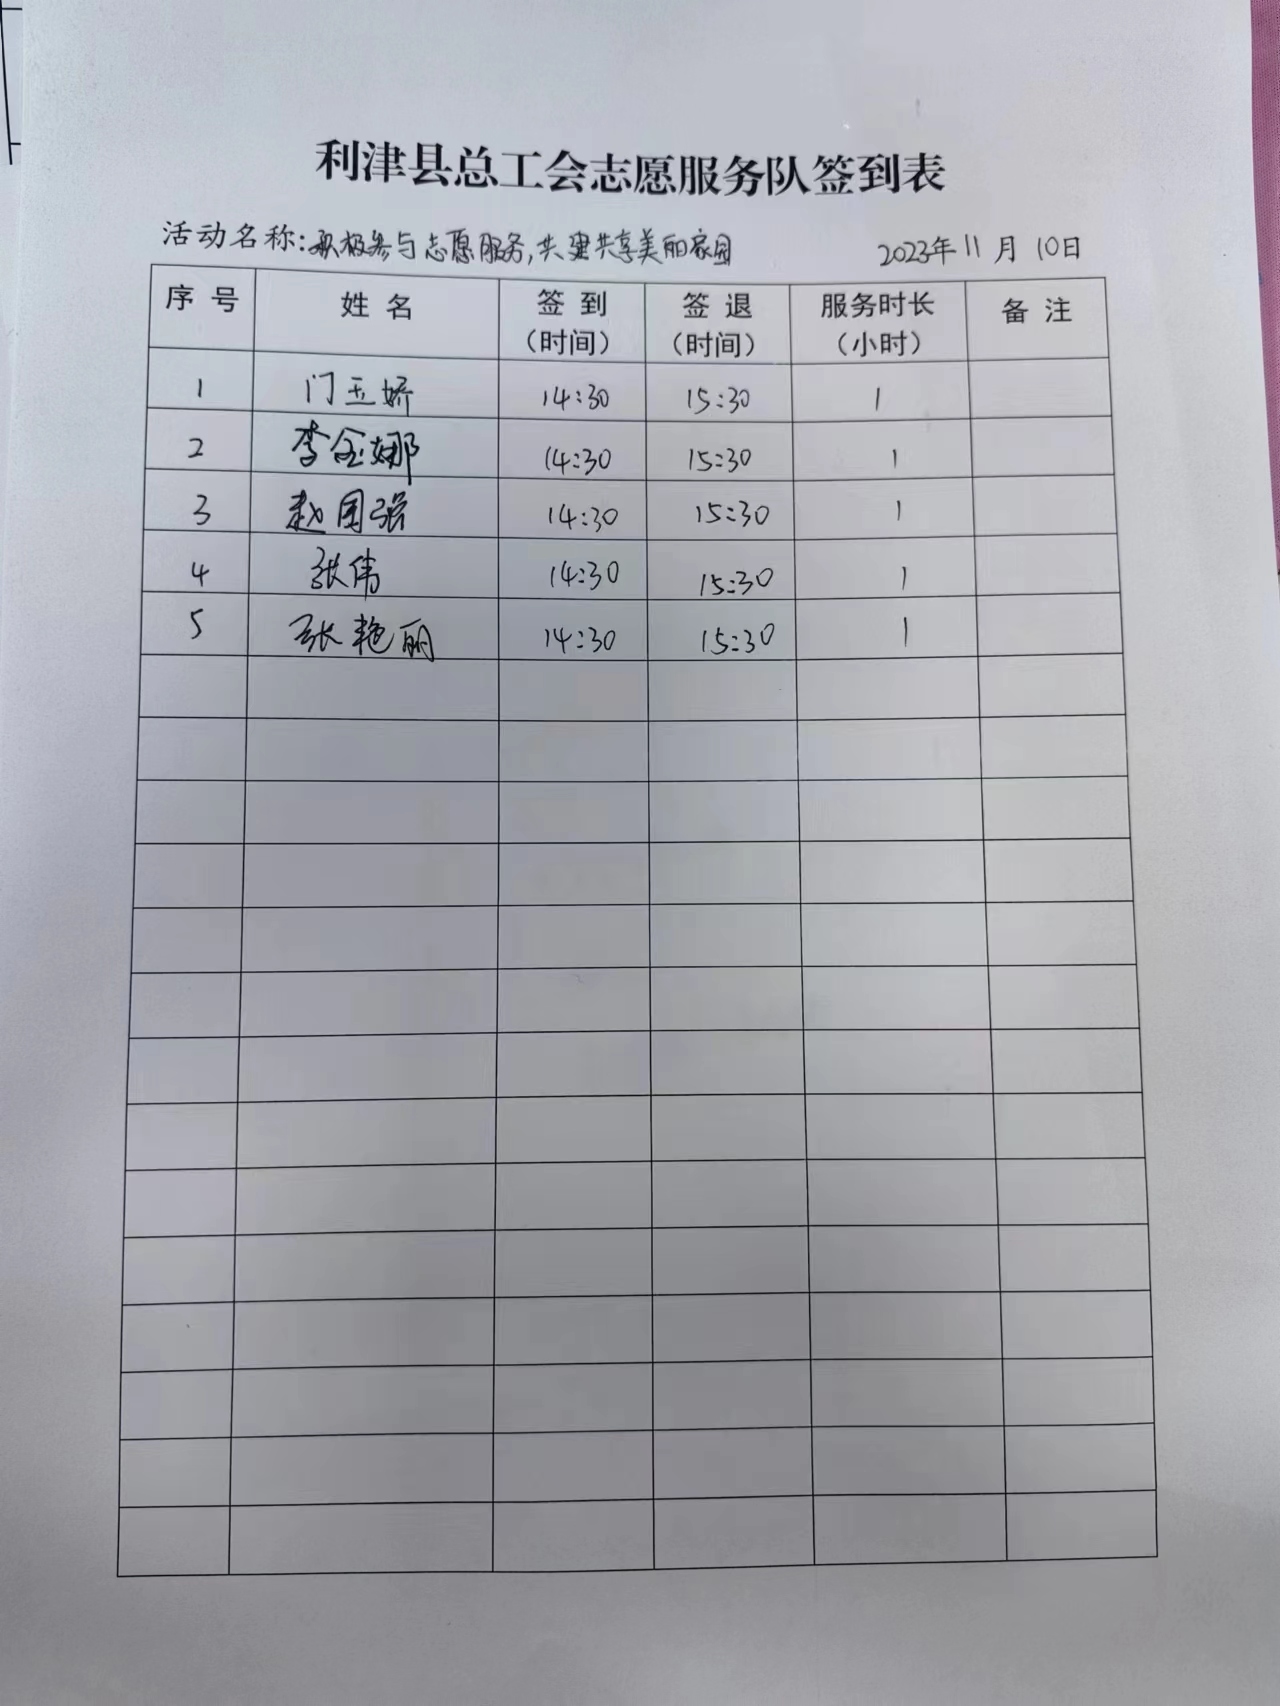 利津县总工会志愿服务队签到表
活动名称：积极参与志愿服务，共建共享美丽家园 2023年11月10日
序号 姓名 签到（时间） 签退（时间） 服务时长（小时） 备注
1 门玉娇 14:30 15:30 1
2 李金娜 14:30 15:30 1
3 赵国强 14:30 15:30 1
4 张伟 14:30 15:30 1
5 张艳丽 14:30 15:30 1